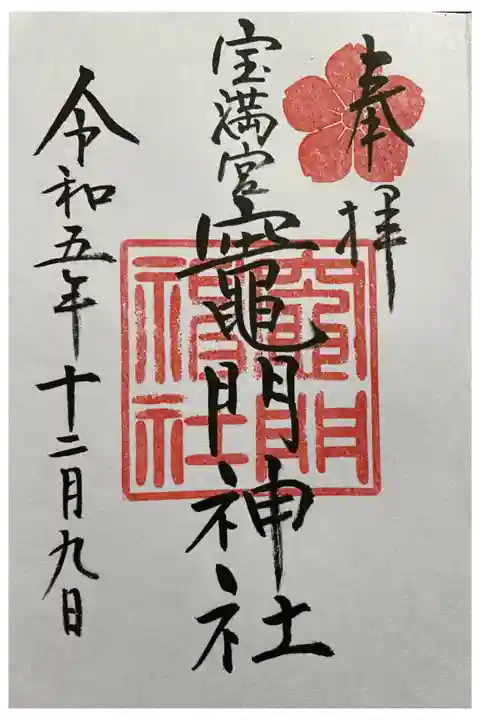 奉拝
宝満宮
竈門神社
竈門神社
令和五年十二月九日